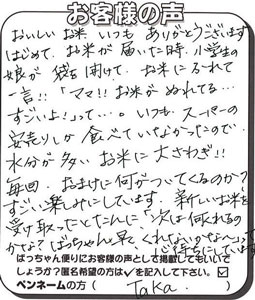 お客様の声
おいしい お米 いつも ありがとうございます
はじめて、お米が 届いた時、小学生の
娘が 袋を開けて、お米にふれて
一言!! 「ママ!! お米が ぬれてる…
すごいよ!」って…。いつも スーパーの
安売りしか 食べて いなかったので
水分が 多い お米に 大さわぎ!!
毎回、おまけに何がついてくるのか?
すごい 楽しみにしています。新しいお米を
受け取ったとたんに「次は何くれるの
かな? ばっちゃん早くくれないかな〜」って
心待ちにしています
ばっちゃん便りにお客様の声として掲載してもいいで
しょうか?匿名希望の方は✓を記入して下さい。☑
ペンネームの方( Taka. )